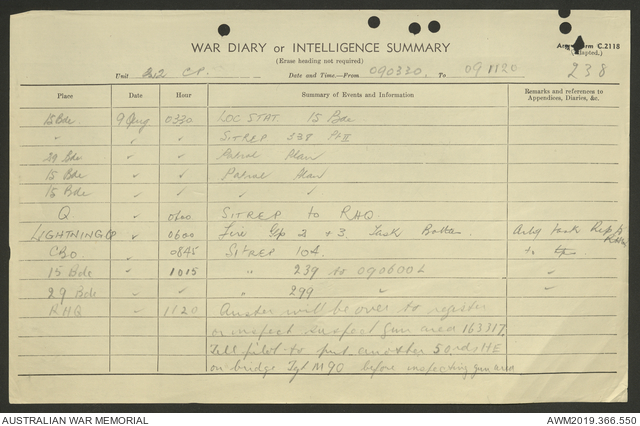 WAR DIARY or INTELLIGENCE SUMMARY
(Erase heading not required)
Army Form C.2118
(Adapted.)
Unit C.P. Date and Time.—From 090330 To 091120
238
Place Date Hour Summary of Events and Information Remarks and references to Appendices, Diaries, &c.
15 Bde 9 Aug 0330 LOC STAT 15 Bde
" ✓ SITREP 338 Pt II
29 Bde ✓ Patrol Plan
15 Bde ✓ ✓ Patrol Plan
15 Bde ✓ ✓ ✓ ✓
Q ✓ 0600 SITREP to RHQ
LIGHTNING ✓ 0600 Fire 2 + 3 Task Arty task Rep
CBO ✓ 0845 Sitrep 104
15 Bde ✓ 1015 " 239 to 090600L ✓
29 Bde ✓ " 299 ✓ ✓
RHQ ✓ 1120 Auster will be over to register
or inspect suspect gun area 163317.
Tell pilot to put another 50 rds HE
on bridge Tgt M90 before inspecting gun area
AUSTRALIAN WAR MEMORIAL AWM2019.366.550